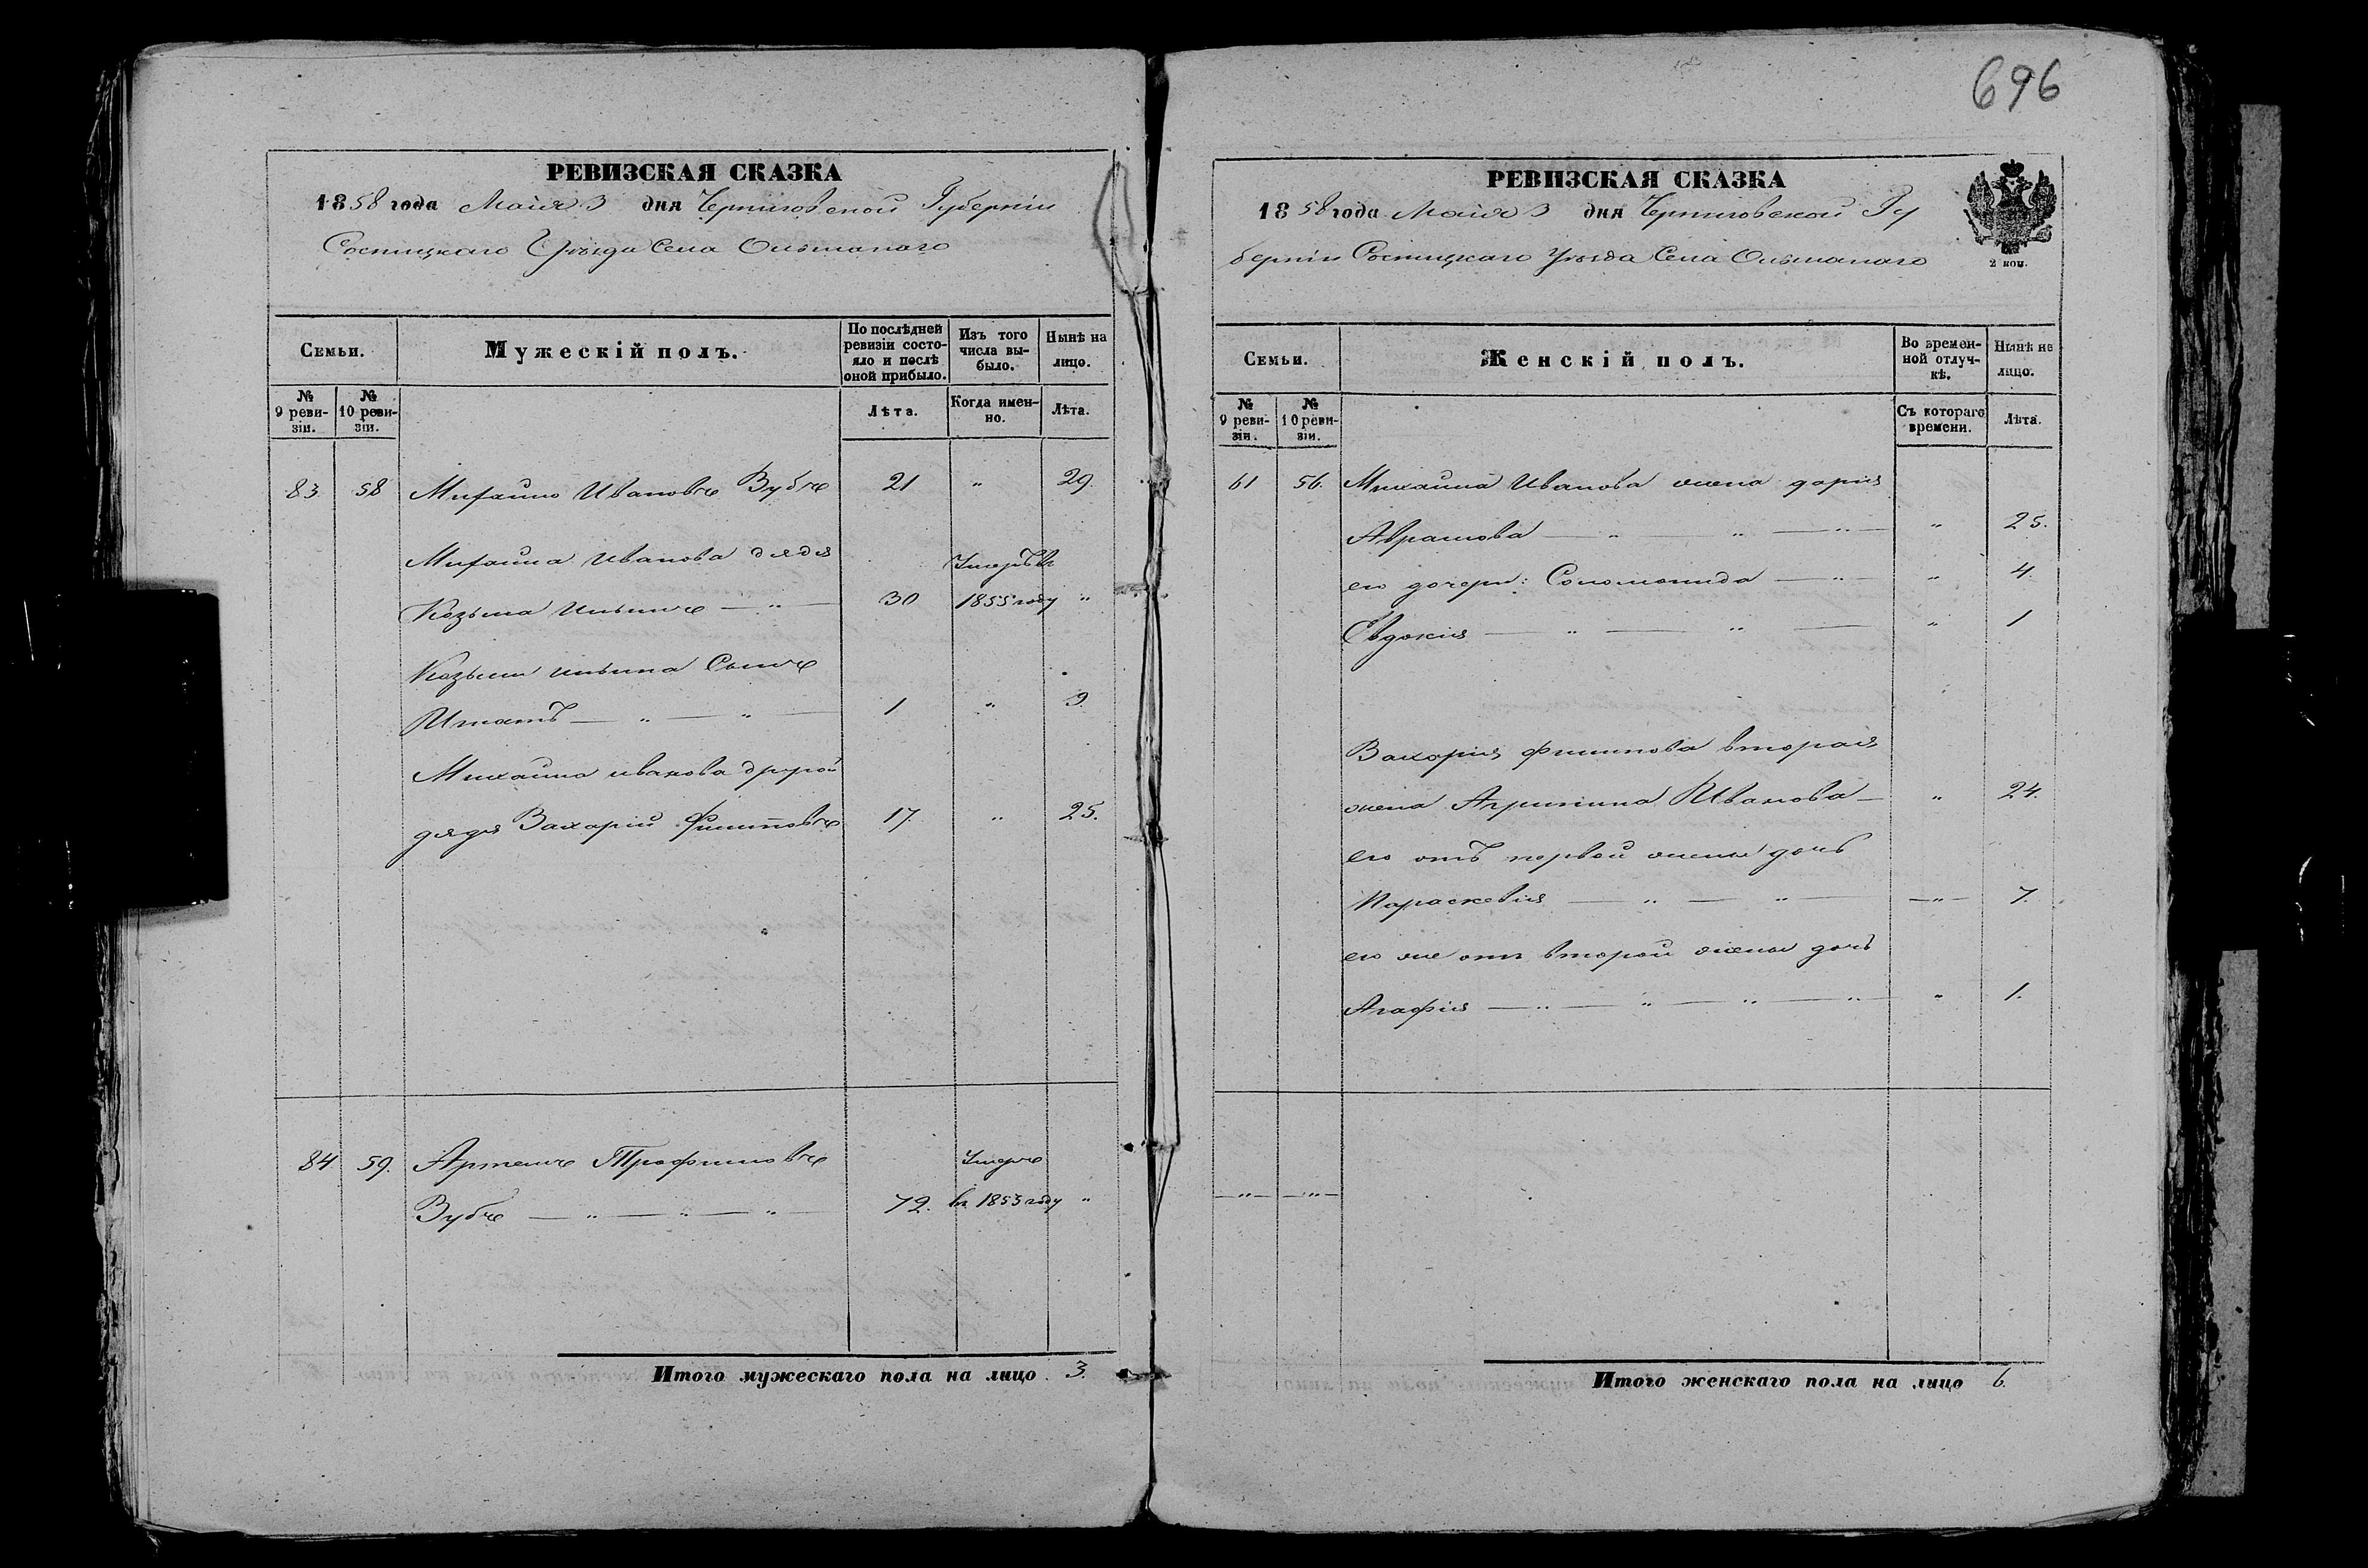 696
РЕВИЗСКАЯ СКАЗКА
1858 года Майя 3 дня Черниговской Губерніи
Сосницкаго Уѣзда Села Ольшанаго
Семьи.
Мужескій полъ.
По послѣдней ревизіи состояло и послѣ оной прибыло.
Изъ того числа выбыло.
Нынѣ на лицо.
№ 9 ревизіи.
№ 10 ревизіи.
Лѣта.
Когда именно.
Лѣта.
83 58 Михаило Ивановъ Зубъ 21 " 29.
Михаила Иванова дядя Умеръ въ
Козьма Ильинъ — " — 30 1855 году "
Козьмы ильина Сынъ
Игнатъ — " — " — 1 " 9.
Михаила иванова другой
дядя Захарій Филиповъ 17. " 25.
84 59. Артемъ Трофимовъ Умеръ
Зубъ — " — " — " — 72. въ 1853 году "
Итого мужескаго пола на лицо 3.
РЕВИЗСКАЯ СКАЗКА
1858 года Майя 3 дня Черниговской Гу
берніи Сосницкаго Уѣзда Села Ольшанаго
2 коп.
Семьи.
Женскій полъ.
Во временной отлучкѣ.
Нынѣ на лицо.
№ 9 ревизіи.
№ 10 ревизіи.
Съ котораго времени.
Лѣта.
61 56. Михаила Иванова жена дарія
Аврамова — " — " — " — " 25.
его дочери: Соломонида — " — " 4.
Евдокія — " — " — " 1
Захарія филипова вторая
жена Агрипина Иванова — " 24.
его отъ первой жены дочь
Параскевія — " — " — — " — 7.
его же отъ второй жены дочь
Агафія — " — " — " — " — " 1.
— " — — " —
Итого женскаго пола на лицо 6.